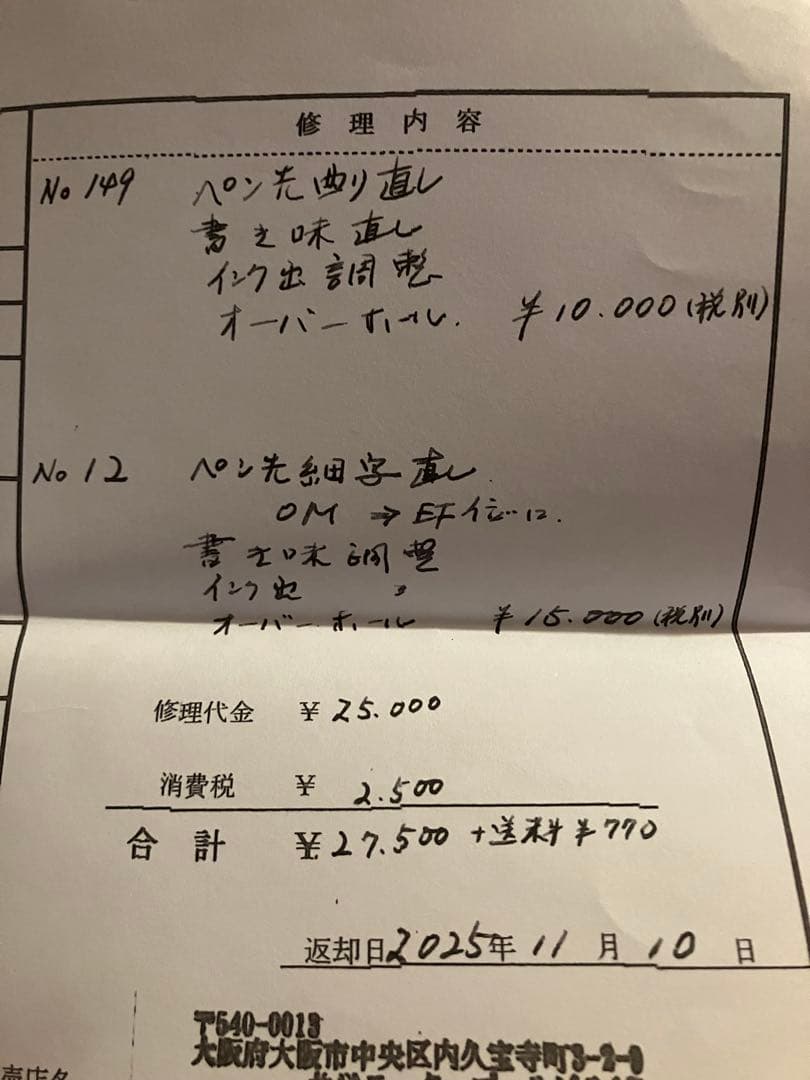 修理内容
No 149 ペン先曲り直し
書き味直し
インク出調整
オーバーホール. ¥10.000(税別)
No 12 ペン先細字直し.
OM ⇒ EF位に.
書き味調整
インク出 〃
オーバーホール ¥15.000(税別)
修理代金 ¥25.000
消費税 ¥2.500
合計 ¥27.500 +送料¥770
返却日2025年11月10日
〒540-0013
大阪府大阪市中央区内久宝寺町3-2-9
売店名